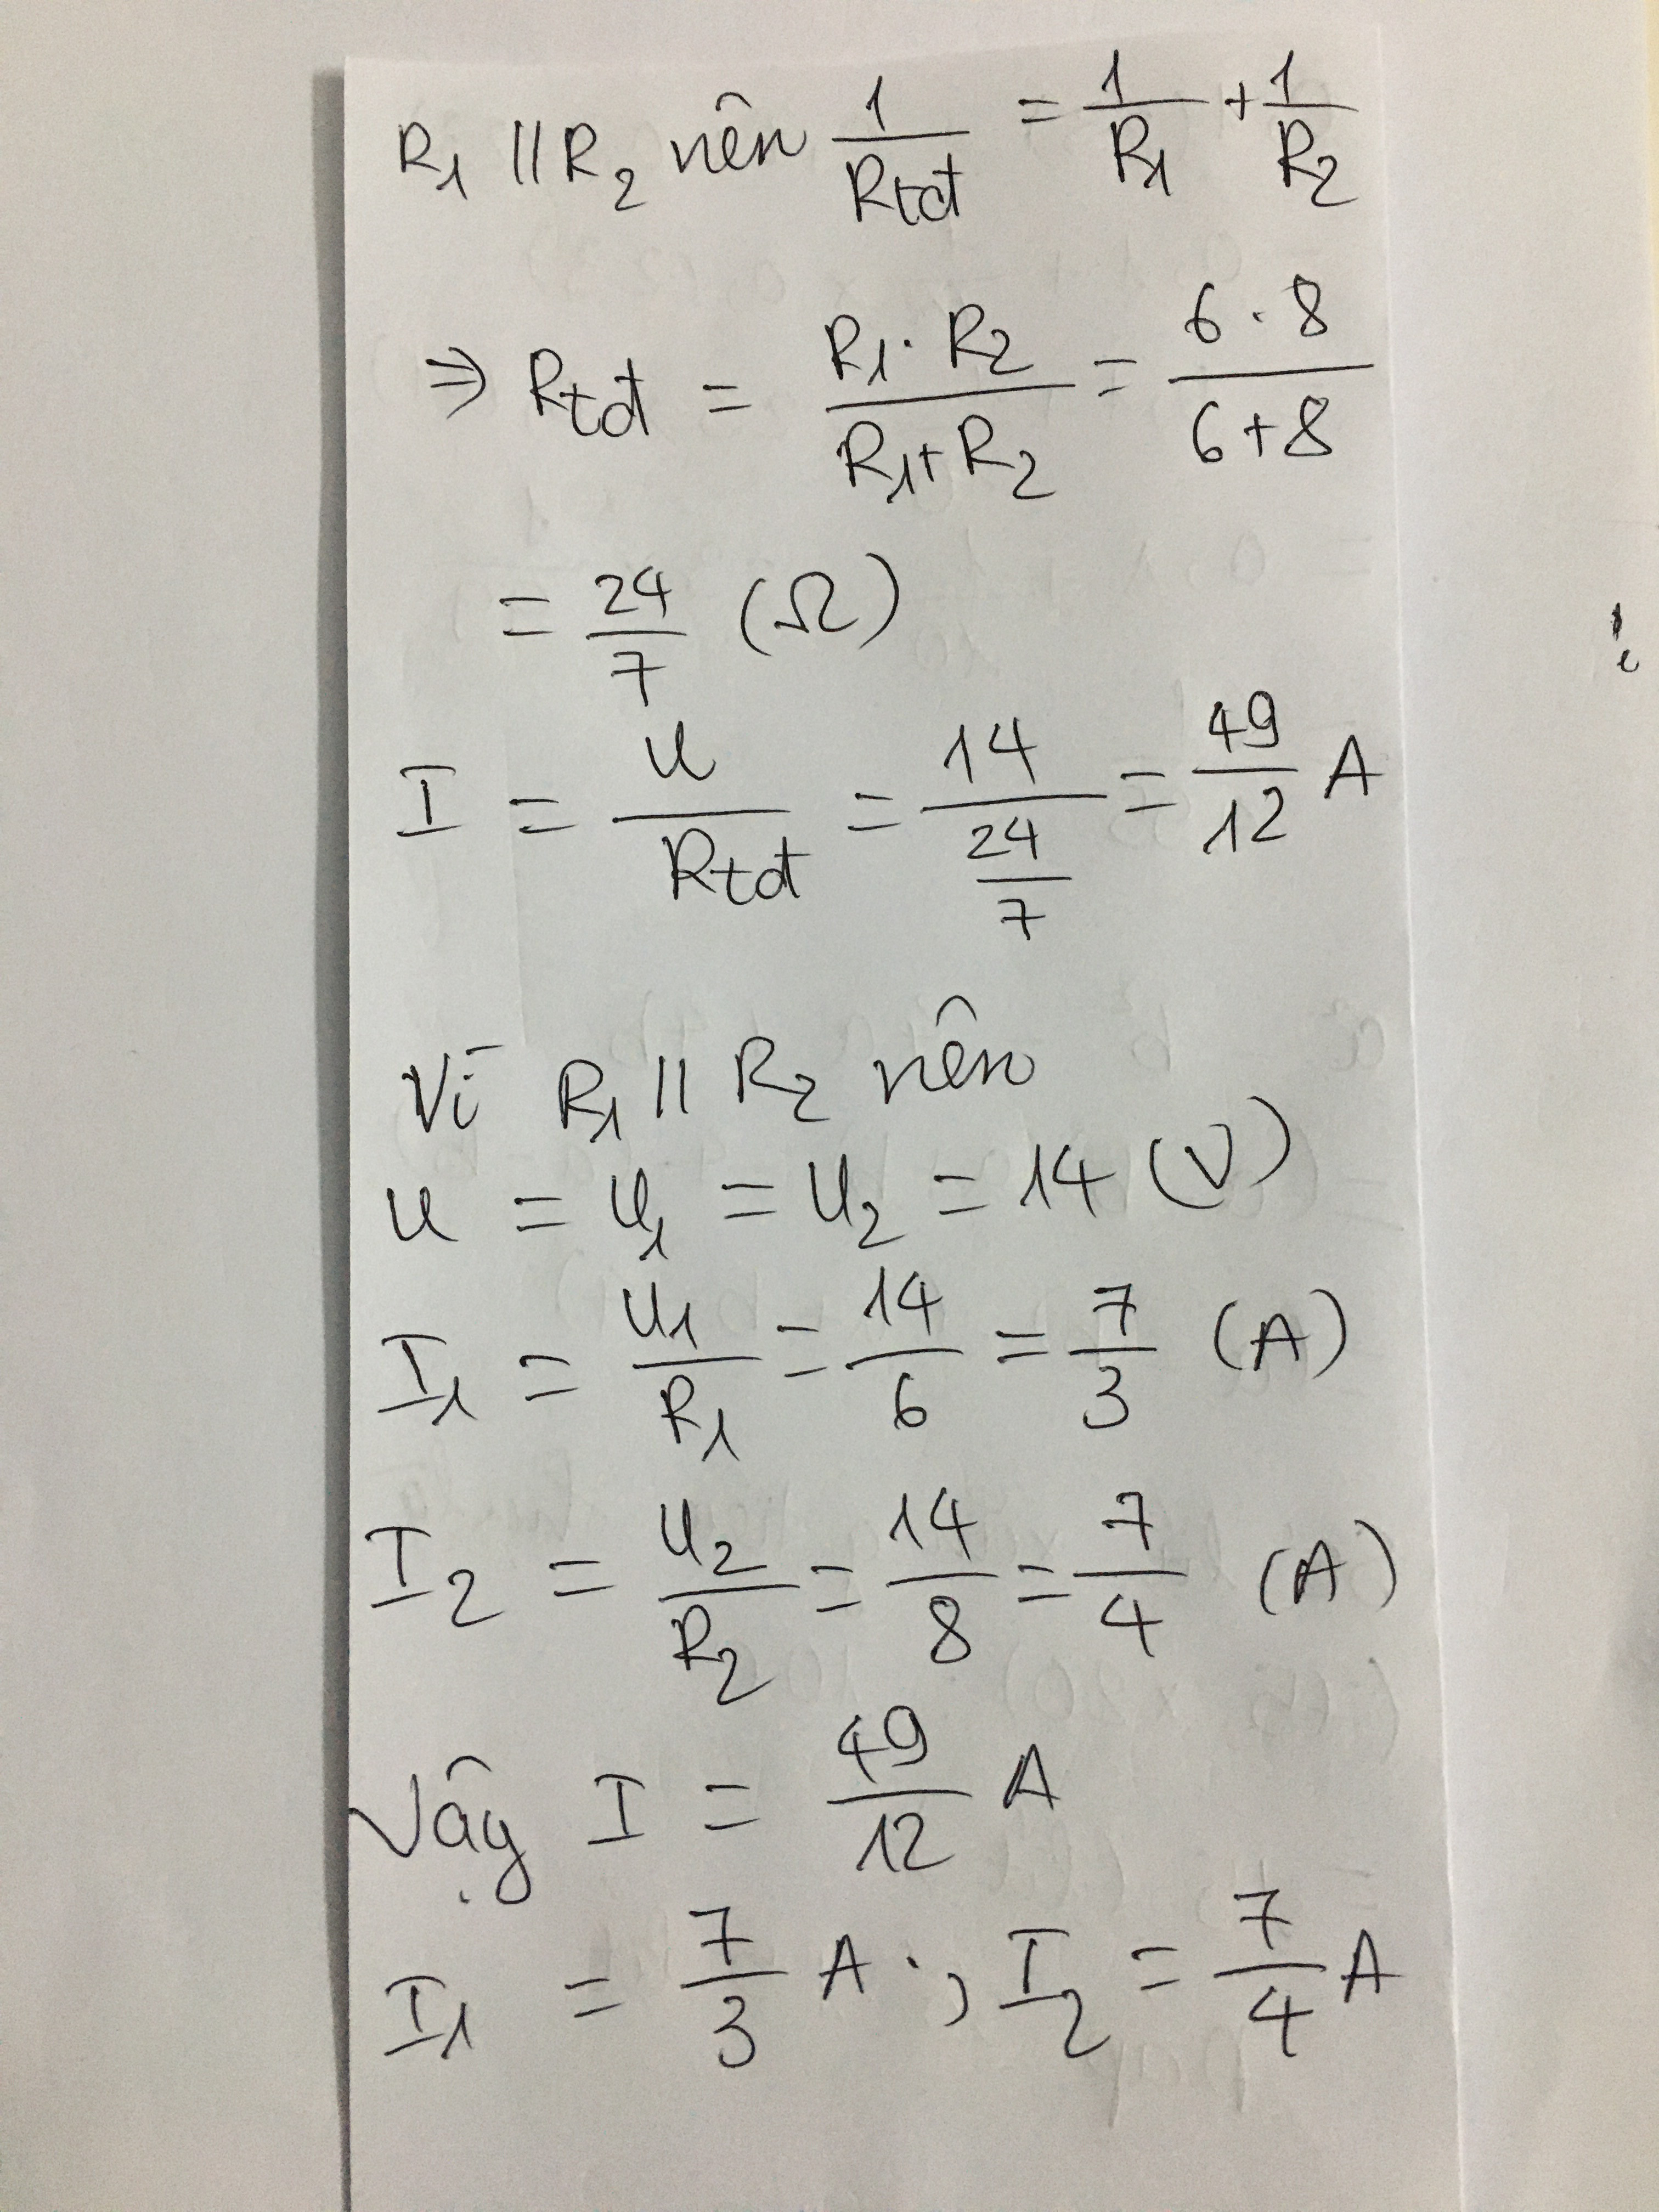 R1 // R2 nên 1/Rtđ = 1/R1 + 1/R2
⇒ Rtđ = R1 . R2 / R1+R2 = 6 . 8 / 6+8
= 24/7 (Ω)
I = U/Rtđ = 14 / 24/7 = 49/12 A
Vì R1 // R2 nên
U = U1 = U2 = 14 (V)
I1 = U1/R1 = 14/6 = 7/3 (A)
I2 = U2/R2 = 14/8 = 7/4 (A)
Vậy I = 49/12 A
I1 = 7/3 A ., I2 = 7/4 A